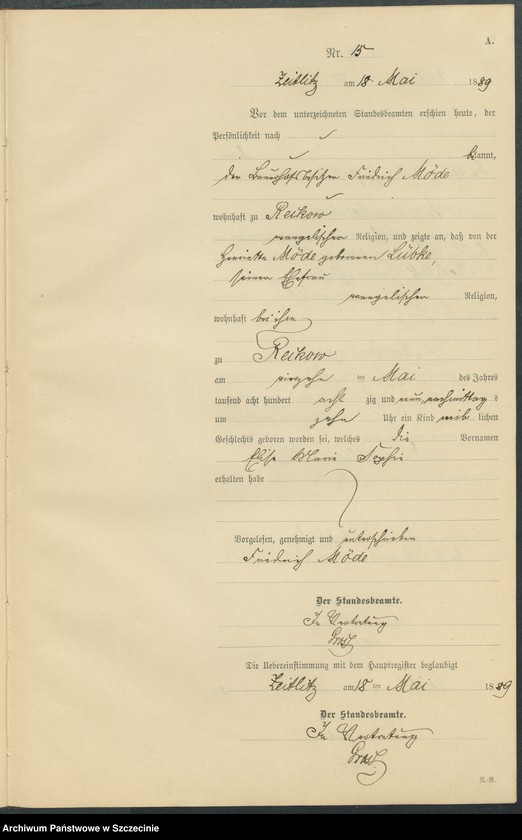 A.
Nr. 15
Zeitlitz am 18 Mai 1889
Vor dem unterzeichneten Standesbeamten erschien heute, der
Persönlichkeit nach
kannt,
der Bauerhofsbesitzer Friedrich Möde
wohnhaft zu Reikow
evangelischer Religion, und zeigte an, daß von der
Henriette Möde geborenen Lübke,
seiner Ehefrau
evangelischer Religion,
wohnhaft bei ihm
zu Reikow
am vierzehn ten Mai des Jahres
tausend acht hundert acht zig und neun, nachmittag s
um zehn Uhr ein Kind weib lichen
Geschlechts geboren worden sei, welches die Vornamen
Elise Marie Sophie
erhalten habe
Vorgelesen, genehmigt und unterschrieben
Friedrich Möde
Der Standesbeamte.
In Vertretung
Die Uebereinstimmung mit dem Hauptregister beglaubigt
Zeitlitz am 18 ten Mai 1889
Der Standesbeamte.
In Vertretung
Archiwum Państwowe w Szczecinie